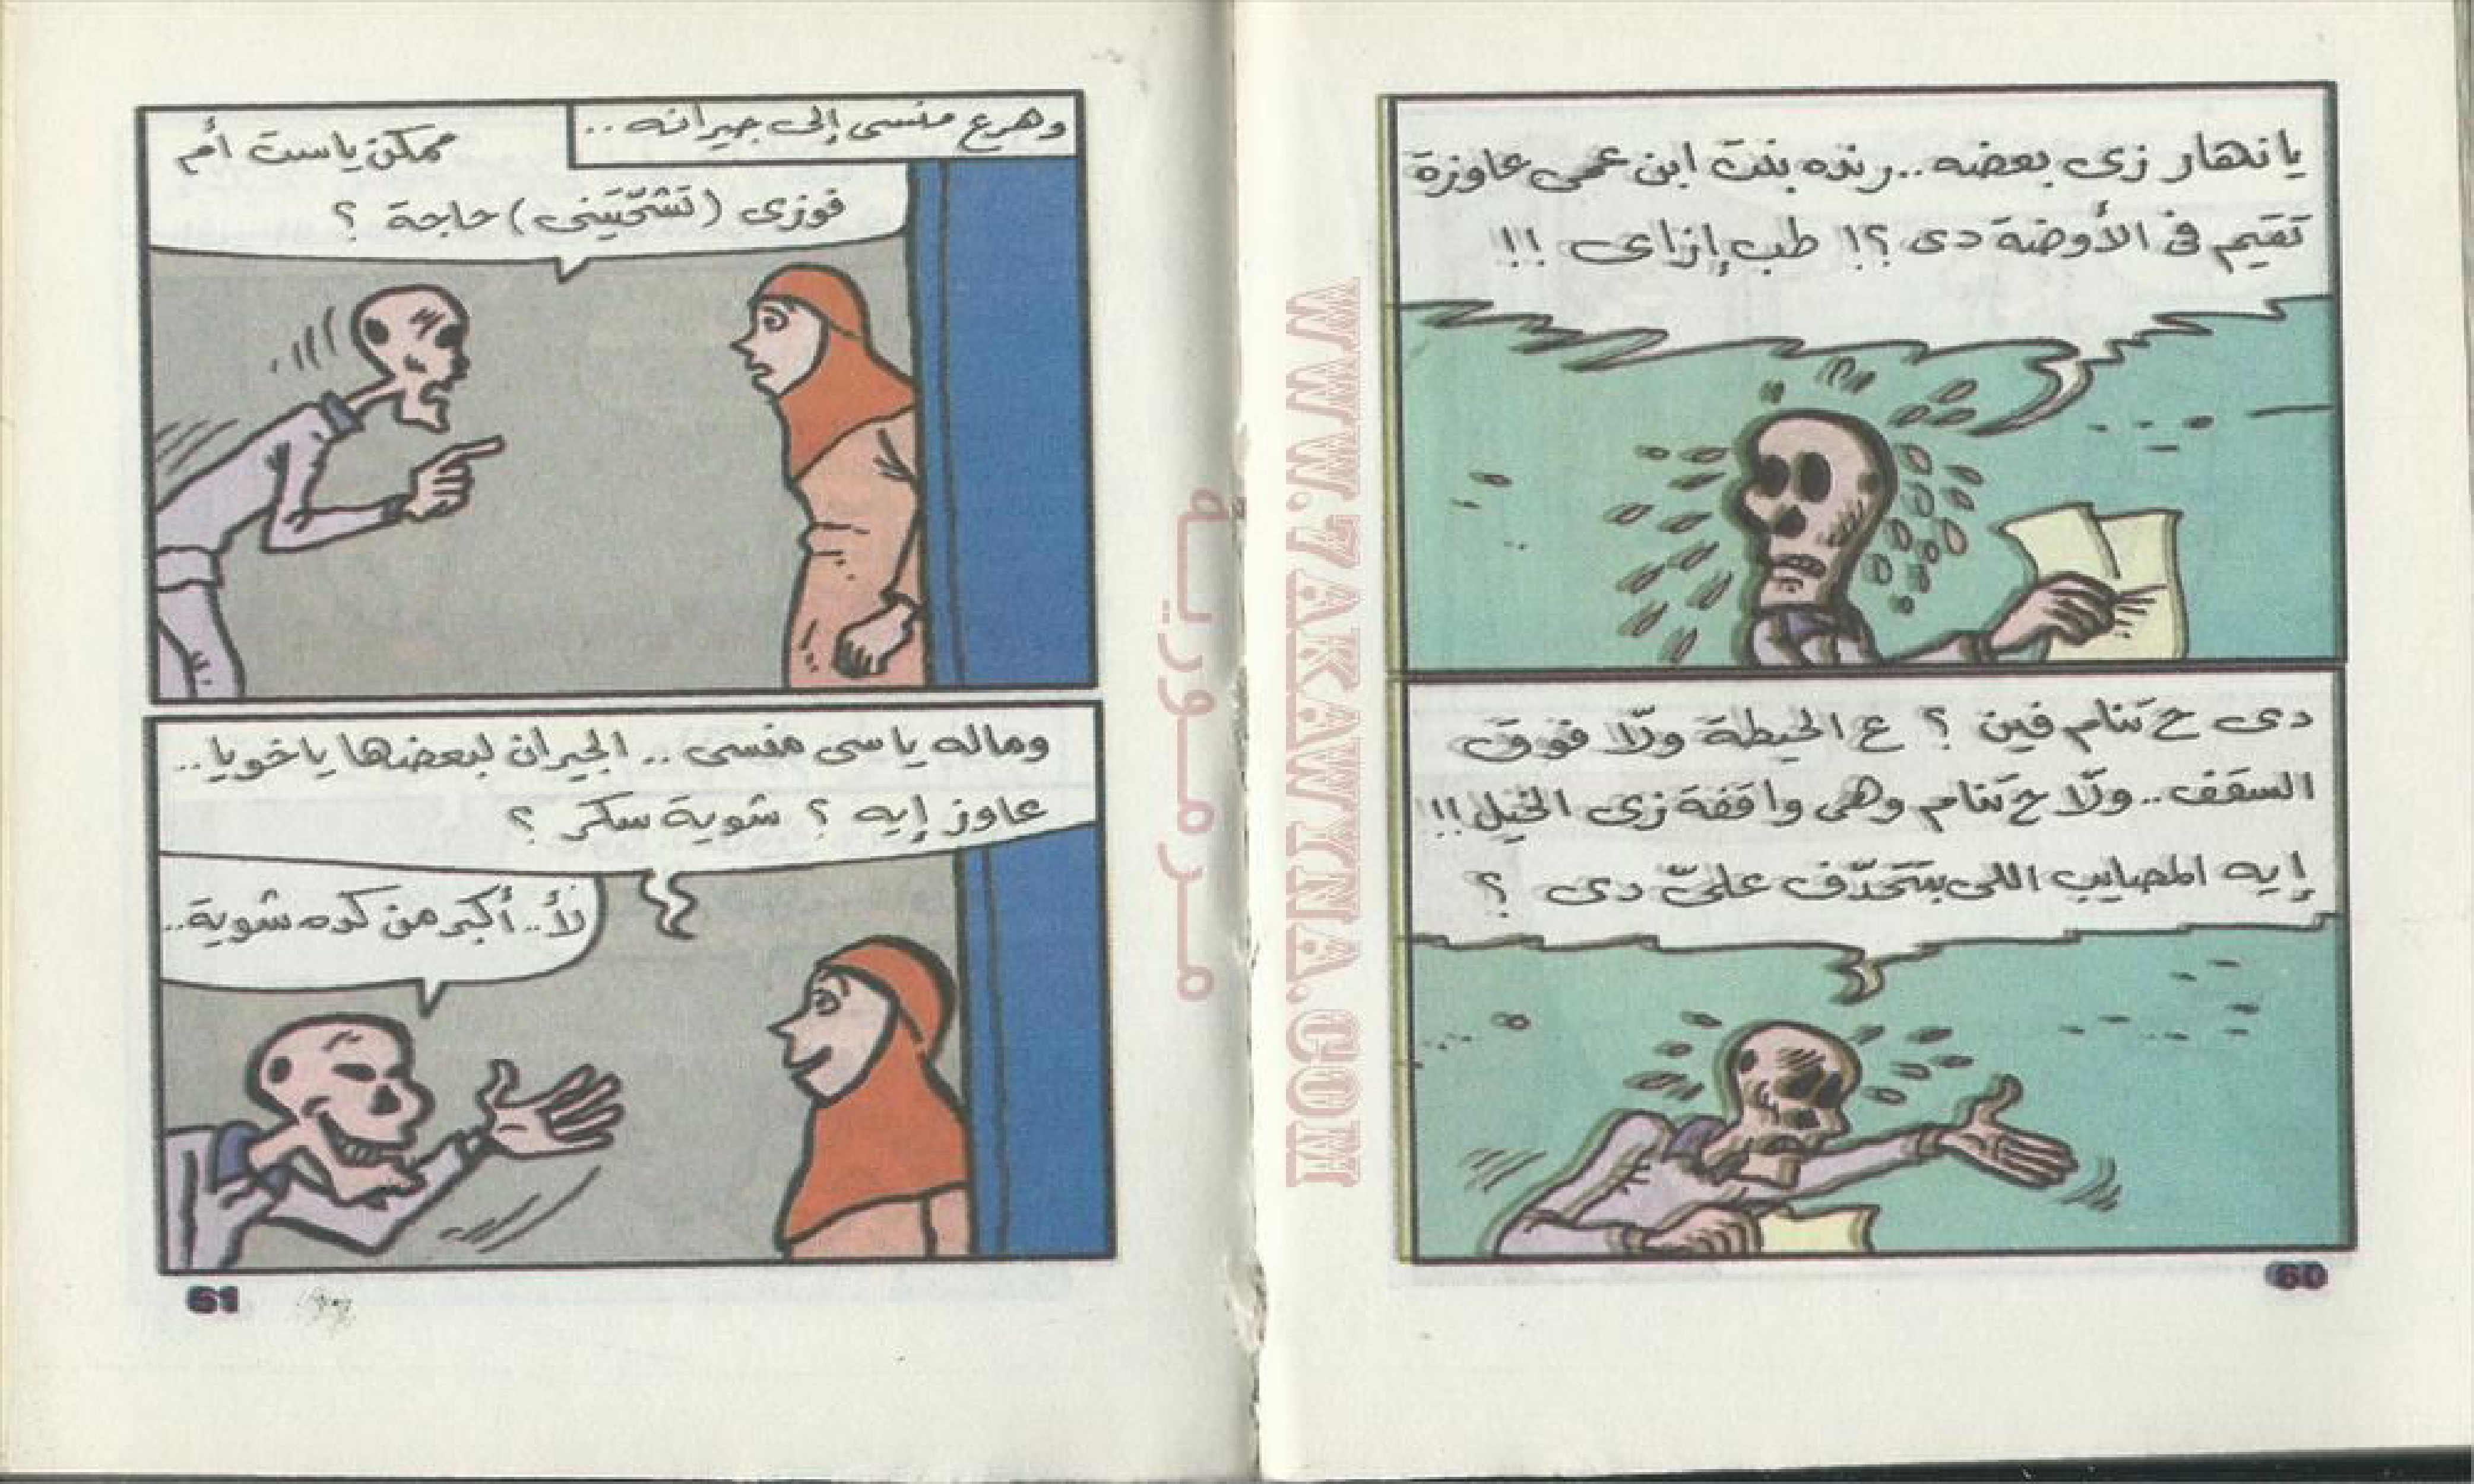 يا نهار زى بعضه.. رنده بنت ابن عمى عاوزة
تقيم فى الأوضة دى ؟! طب إزاى !!
دى ح تنام فين ؟ ع الحيطة ولّا فوق
السقف.. ولّا ح تنام وهى واقفة زى الخيل !!
إيه المصايب اللى بتتحدّف علىّ دى ؟
60
وهرع منسى إلى جيرانه..
ممكن ياست أم
فوزى (تشحّتينى) حاجة ؟
وماله ياسى منسى .. الجيران لبعضها ياخويا..
عاوز إيه ؟ شوية سكر ؟
لأ.. أكبر من كده شوية..
61
WWW.7AKAWINA.COM
مـرمـوريـة